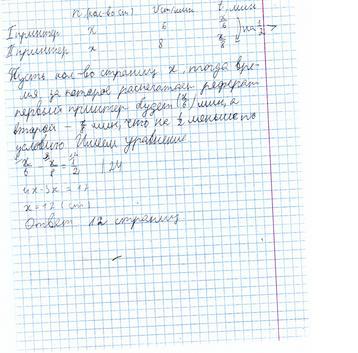 n (кол-во ст) V ст/мин t, мин
I принтер x 6 x/6
II принтер x 8 x/8 на 1/2 >
Пусть кол-во страниц x, тогда вре-
мя, за которое распечатает реферат
первый принтер будет (x/6) мин, а
второй – x/8 мин, что на 1/2 меньше по
условию. Имеем уравнение
x/6 - x/8 = 1/2 | 24
4x-3x=12
x=12 (ст)
Ответ 12 страниц.